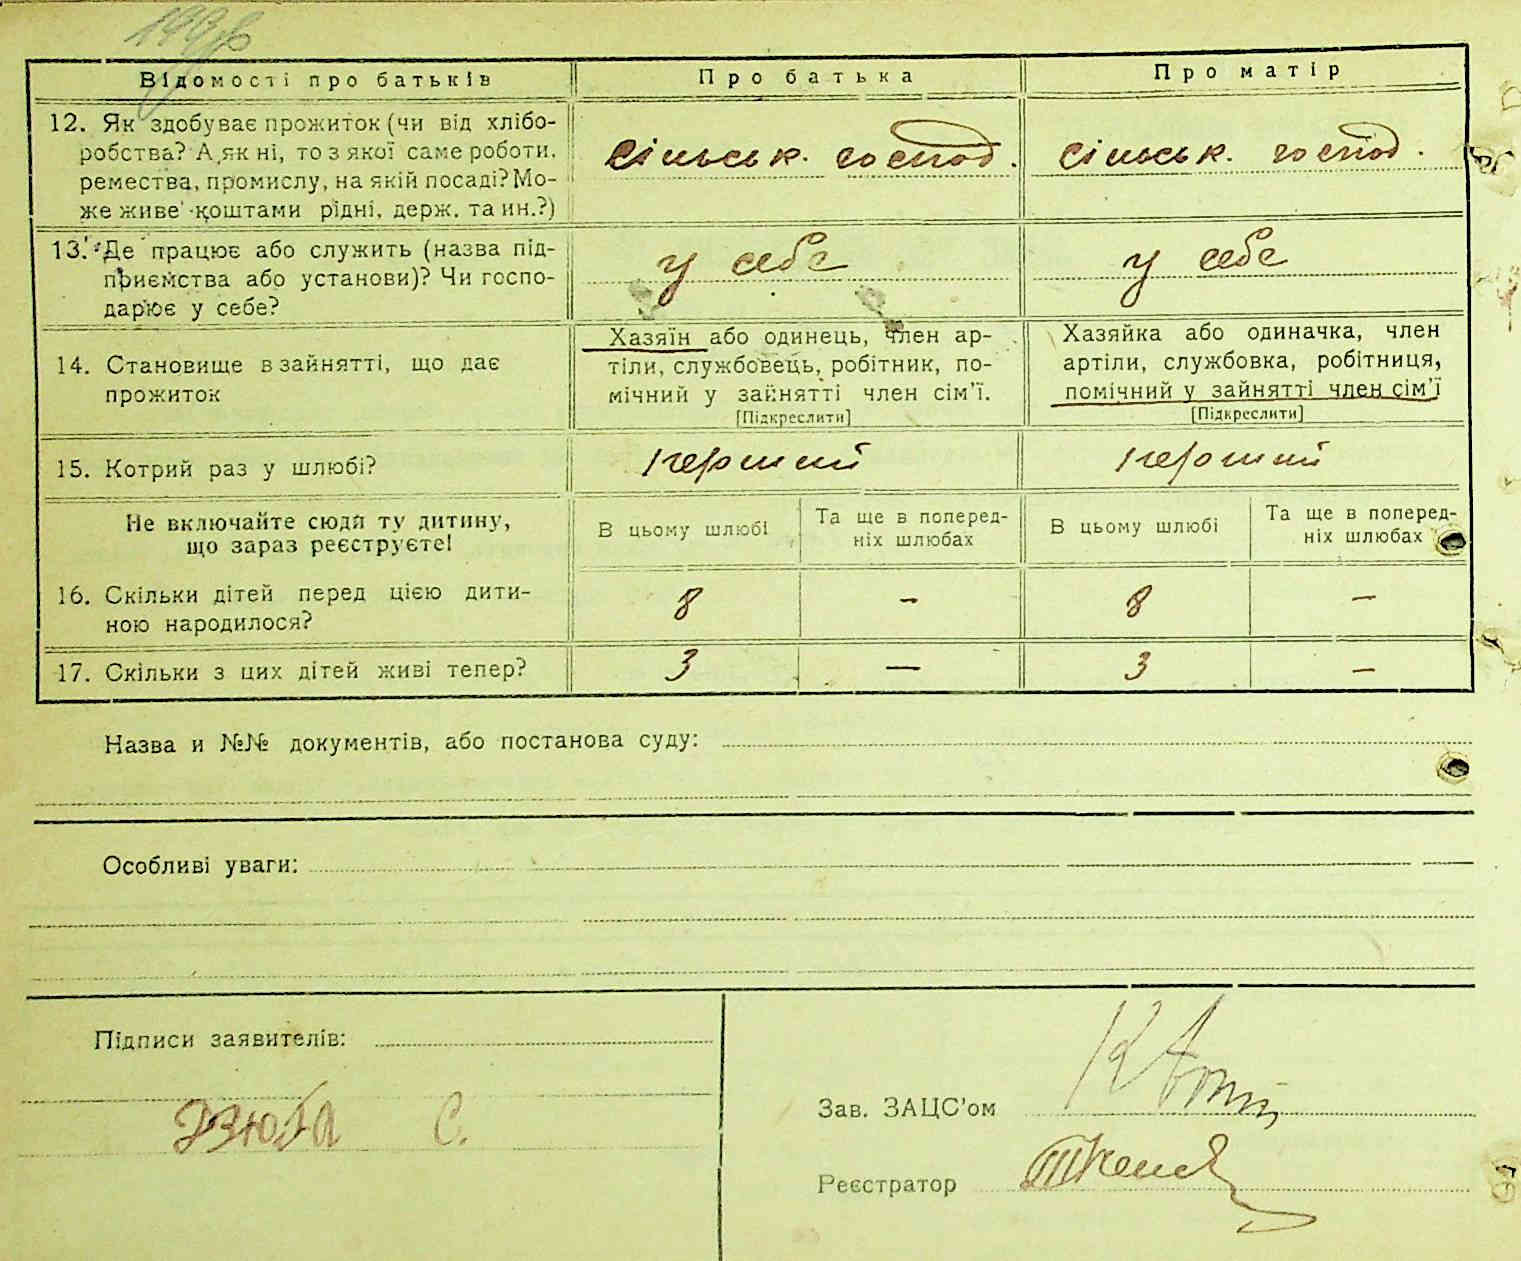 Відомості про батьків
Про батька
Про матір
12. Як здобуває прожиток (чи від хлібо-
робства? А як ні, то з якої саме роботи,
ремества, промислу, на якій посаді? Мо-
же живе коштами рідні, держ. та ин.?)
сільськ. господ.
сільськ. господ.
13. Де працює або служить (назва під-
приємства або установи)? Чи госпо-
дарює у себе?
у себе
у себе
14. Становище в зайнятті, що дає
прожиток
Хазяїн або одинець, член ар-
тіли, службовець, робітник, по-
мічний у зайнятті член сім'ї.
[Підкреслити]
Хазяйка або одиначка, член
артіли, службовка, робітниця,
помічний у зайнятті член сім'ї
[Підкреслити]
15. Котрий раз у шлюбі?
перший
перший
Не включайте сюди ту дитину,
що зараз реєструєте!
В цьому шлюбі
Та ще в поперед-
ніх шлюбах
В цьому шлюбі
Та ще в поперед-
ніх шлюбах
16. Скільки дітей перед цією дити-
ною народилося?
8
–
8
–
17. Скільки з цих дітей живі тепер?
3
–
3
–
Назва и №№ документів, або постанова суду:
Особливі уваги:
Підписи заявителів:
Дзюба С.
Зав. ЗАЦС'ом
Реєстратор